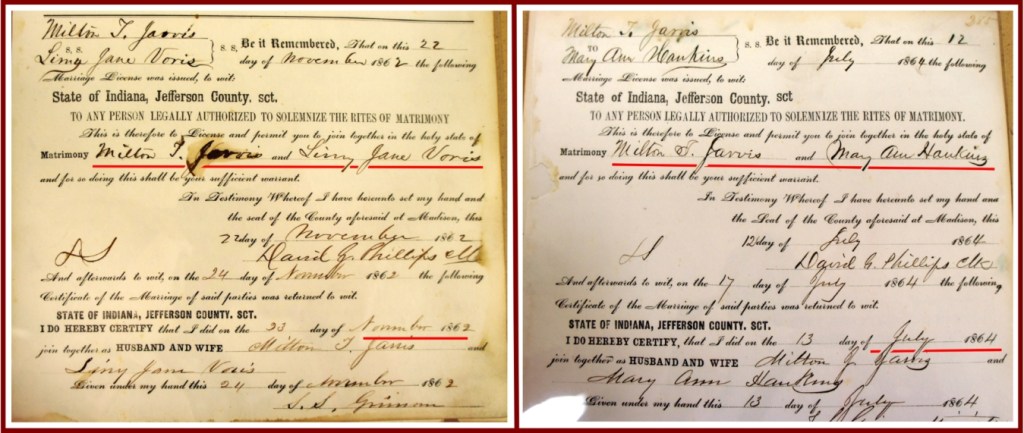 Milton T. Jarvis
S. S.
Limy Jane Voris
S. S. Be it Remembered, That on this 22
day of November 1862 the following
Marriage License was issued, to wit:
State of Indiana, Jefferson County. sct.
TO ANY PERSON LEGALLY AUTHORIZED TO SOLEMNIZE THE RITES OF MATRIMONY
This is therefore to License and permit you to join together in the holy state of
Matrimony Milton T. Jarvis and Limy Jane Voris
and for so doing this shall be your sufficient warrant.
In Testimony Whereof I have hereunto set my hand and
the seal of the County aforesaid at Madison, this
22 day of November 1862
LS
David G. Phillips Clk
And afterwards to wit, on the 24 day of November 1862 the following
Certificate of the Marriage of said parties was returned to wit.
STATE OF INDIANA, JEFFERSON COUNTY. SCT.
I DO HEREBY CERTIFY that I did on the 23 day of November 1862
join together as HUSBAND AND WIFE Milton T. Jarvis and
Limy Jane Voris
Given under my hand this 24 day of November 1862
Milton T. Jarvis
TO
Mary Ann Hankins
S. S. Be it Remembered, That on this 12
day of July 1864 the following
Marriage License was issued, to wit:
State of Indiana, Jefferson County. sct
TO ANY PERSON LEGALLY AUTHORIZED TO SOLEMNIZE THE RITES OF MATRIMONY.
This is therefore to License and permit you to join together in the holy state of
Matrimony Milton T. Jarvis and Mary Ann Hankins
and for so doing this shall be your sufficient warrant.
In Testimony Whereof I have hereunto set my hand and
the Seal of the County aforesaid at Madison, this
12 day of July 1864
LS
David G. Phillips Clk
And afterwards to wit, on the 17 day of July 1864 the following
Certificate of the Marriage of said parties was returned to wit.
STATE OF INDIANA, JEFFERSON COUNTY. SCT.
I DO HEREBY CERTIFY, that I did on the 13 day of July 1864
join together as HUSBAND AND WIFE Milton Jarvis and
Mary Ann Hankins
Given under my hand this 13 day of July 1864